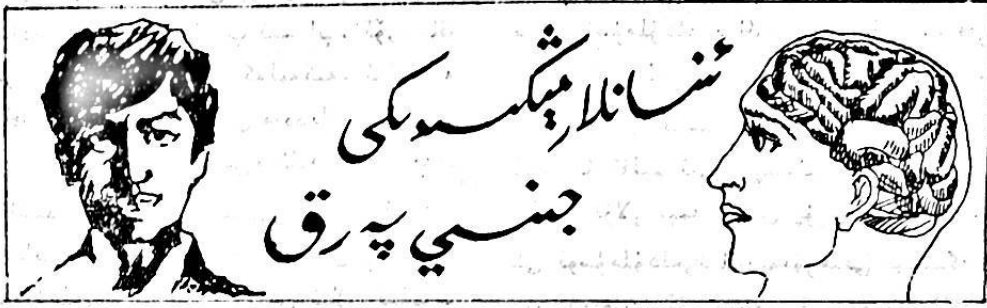 ئىنسانلار مېڭىسىدىكى
جىنسىي پەرق